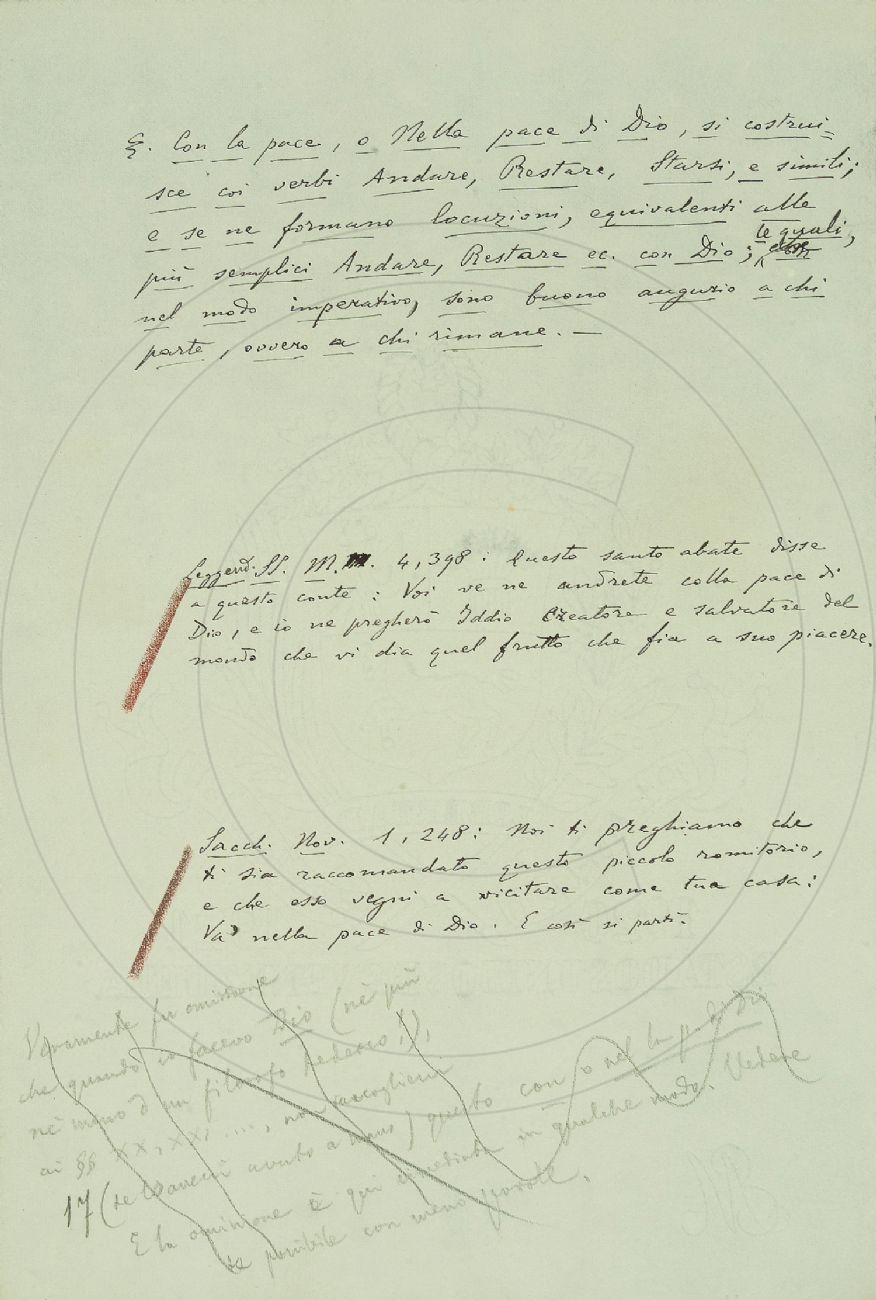 §. Con la pace, o Nella pace di Dio, si costrui=
sce coi verbi Andare, Restare, Starsi, e simili;
e se ne formano locuzioni, equivalenti alle
più semplici Andare, Restare ec. con Dio; le quali,
nel modo imperativo, sono buono augurio a chi
parte, ovvero a chi rimane. —
Leggend. SS. M. 4, 398: Questo santo abate disse
a questo conte: Voi ve ne andrete colla pace di
Dio, e io ne pregherò Iddio Creatore e salvatore del
mondo che vi dia quel frutto che fia a suo piacere.
Sacch. Nov. 1, 248: Noi ti preghiamo che
ti sia raccomandato questo piccolo romitorio,
e che esso vegni a vicitare come tua casa:
Va nella pace di Dio. E così si partì.
Veramente fu omissione
che quando io facevo Dio (nè più
nè meno d'un filosofo tedesco!),
ai §§ XX, XXI ...., non raccoglievi
17 (se l'avevi avuto a mano) questo con o nella pace di Dio
E la omissione è qui rimediata in qualche modo. Vedere
se possibile con meno parole.